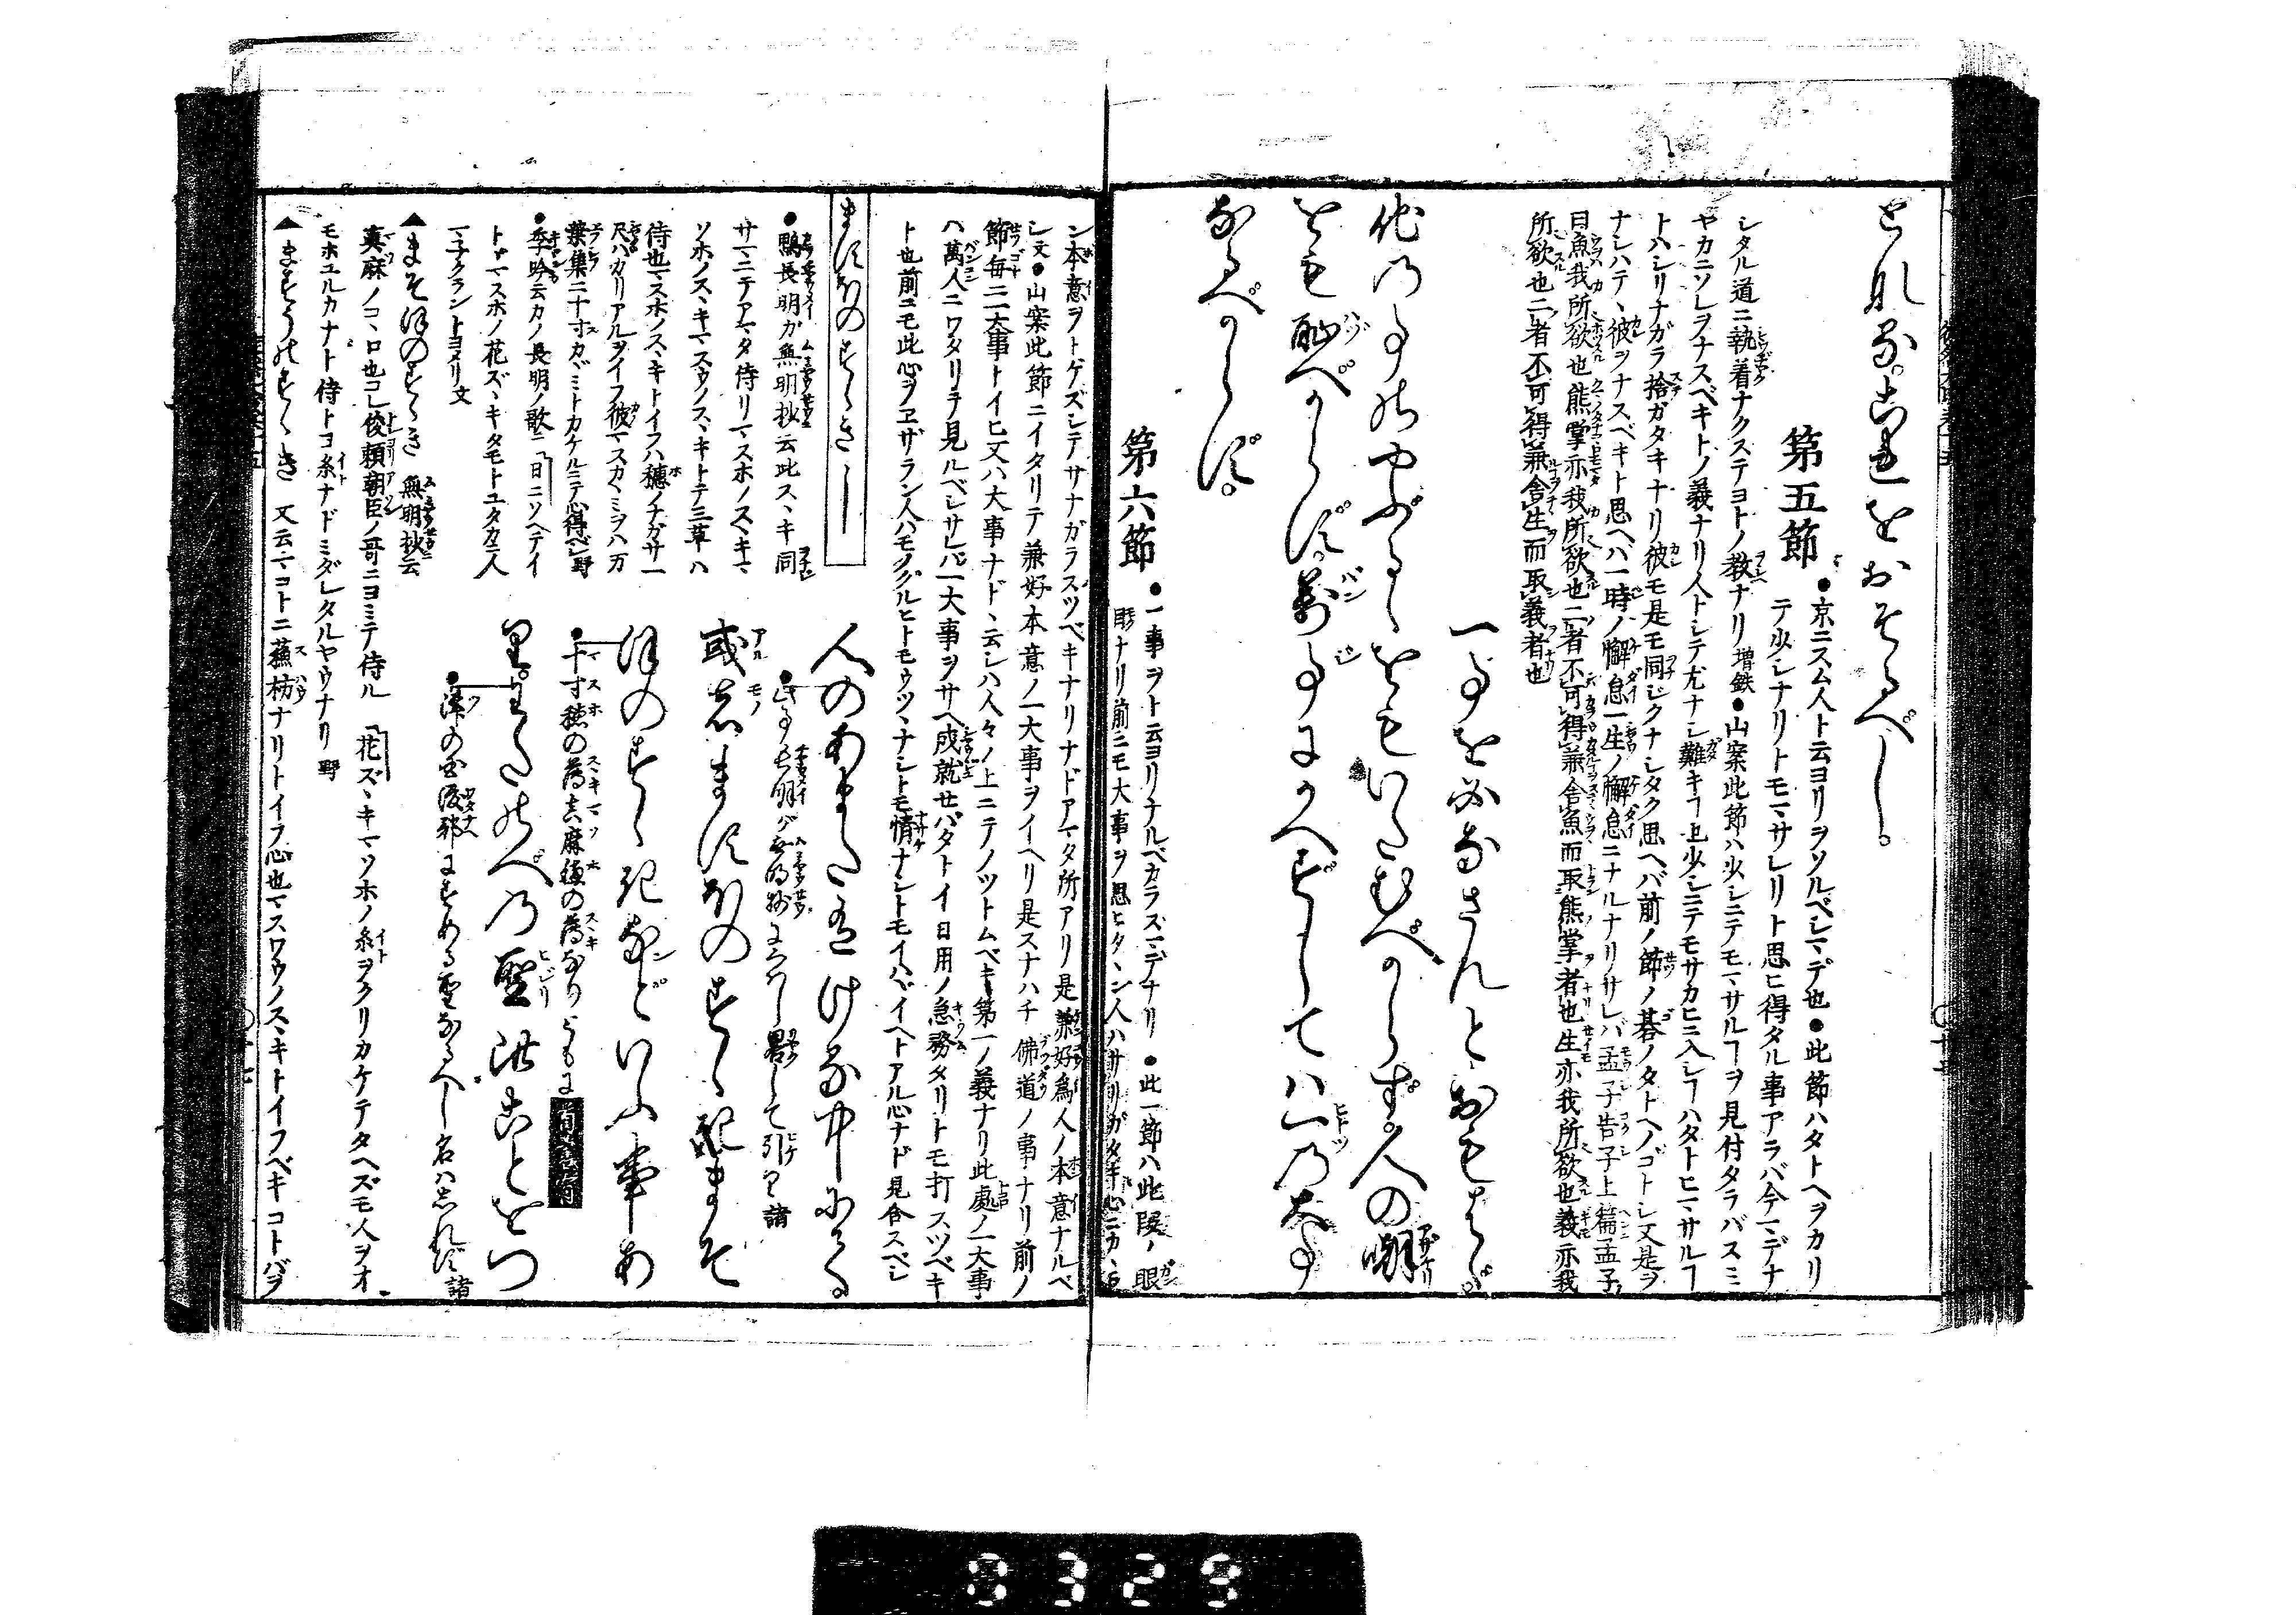 とれる。これをおそるべし。
第五節
●京ニスム人ト云ヨリヲソルベシマデ也●此節ハタトヘヲカリ
テ少シナリトモマサレリト思ヒ得タル事アラバ今マデナ
シタル道ニ執着ナクステヨトノ教ナリ 増鉄●山案此節ハ少シニテモマサルヿヲ見付タラバスミ
ヤカニソレヲナスベキトノ義ナリ人トシテ尤ナシ難キヿ也少シニテモサカヒニ入シヿハタトヒマサルヿ
トハシリナガラ捨ガタキナリ彼モ是モ同ジクナシタク思ヘバ前ノ節ノ碁ノタトヘノゴトシ又是ヲ
ナシハテヽ彼ヲナスベキト思ヘバ一時ノ懈怠一生ノ懈怠ニナルナリサレバ孟子告子上篇孟子
曰魚我所欲也熊掌亦我所欲也二者不可得兼舎魚而取熊掌者也生亦我所欲也義亦我
所欲也二者不可得兼舎生而取義者也
一事を必なさんとおもはゞ
他の事のやぶるゝをもいたむべからず。人の嘲
をも恥べからず。萬事にかへずしては一の大事
なるべからず。
第六節
●一事ヲト云ヨリナルベカラズマデナリ ●此一節ハ此段ノ眼
ナリ前ニモ大事ヲ思ヒタヽン人ハサリガタキ心ニカヽラ
ン本意ヲトゲズシテサナガラスツベキナリナドアマタ所アリ是兼好為人ノ本意ナルベ
シ文●山案此節ニイタリテ兼好本意ノ一大事ヲイヘリ是スナハチ佛道ノ事ナリ前ノ
節毎ニ一大事トイヒ又ハ大事ナドヽ云シハ人々ノ上ニテノツトムベキ第一ノ義ナリ此處ノ一大事
ハ萬人ニワタリテ見ルベシサレバ一大事ヲサヘ成就セバタトイ日用ノ急務タリトモ打スツベキ
ト也前ニモ此心ヲヱザラン人ハモノグルヒトモウツヽナシトモ情ナシトモイハヾイヘトアル心ナド見合スベシ
ますほのすゝき
●鴨長明ガ無明抄云此スヽキ同
サマニテアマタ侍リマスホノスヽキマ
ソホノスヽキマスウノスヽキトテ三草ハ
侍也マスホノスヽキトイフハ穂ノナガサ一
尺バカリアルヲイフ彼マスカヾミヲハ万
葉集ニ十寸カヾミトカケルニテ心得ベシ野
●季吟云カノ長明ノ歌ニ「日ニソヘテイ
トヾマスホノ花ズヽキタモトユタカニ人
マ子クラントヨメリ文
▲まそほのすゝき 無明抄云
真麻ノコヽロ也コレ俊頼朝臣ノ哥ニヨミテ侍ル 「花ズヽキマソホノ糸ヲクリカケテタヘズモ人ヲオ
モホユルカナト侍トコ糸ナドミダレタルヤウナリ 野
▲ますうのすゝき 又云マコトニ蘇枋ナリトイフ心也マスワウノスヽキトイフベキコトバヲ
人のあまた有ける中にてある
●此事長明が無明抄にみへし畧して引り 諸
或者ますほのすゝきまそ
ほのすゝきなどいふ事あ
●十寸穂の薄真麻穂の薄なりともに
り。わたのべの聖此ことをつ
●津の国渡邊にすめる聖なるべし名はしれず 諸